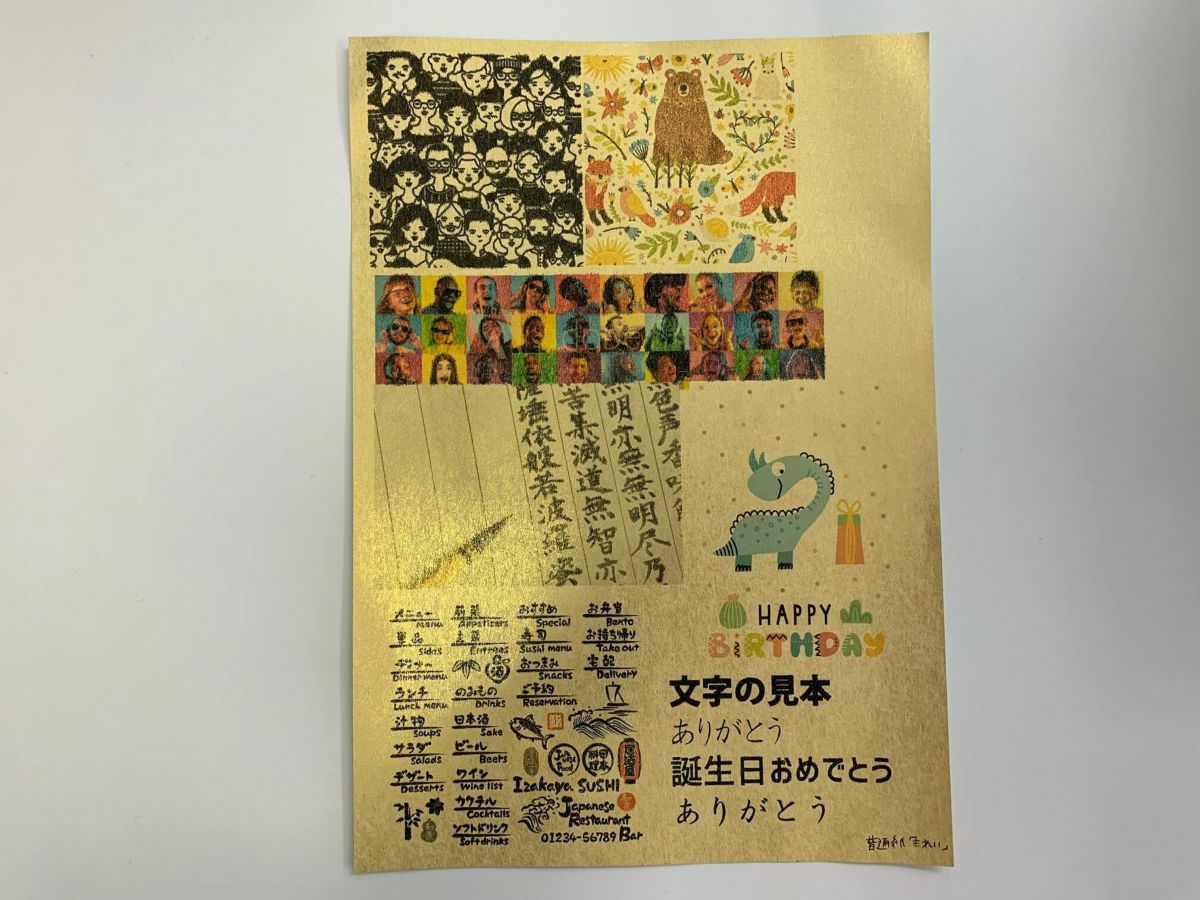 色声香味
無明亦無無明尽乃
苦集滅道無智亦
依般若波羅蜜
HAPPY
BiRTHDAY
メニュー
menu
単品
Sides
Dinner menu
ランチ
Lunch menu
汁物
Soups
サラダ
Salads
デザート
Desserts
前菜
Appetizers
主菜
Entrees
酒
のみもの
Drinks
日本酒
Sake
ビール
Beers
ワイン
Wine list
カクテル
Cocktails
ソフトドリンク
Soft drinks
おすすめ
Special
寿司
Sushi menu
おつまみ
Snacks
ご予約
Reservation
お弁当
Bento
お持ち帰り
Take out
宅配
Delivery
鮨
居酒屋
Izakaya SUSHI
Japanese
Restaurant
01234-56789 Bar
文字の見本
ありがとう
誕生日おめでとう
ありがとう
普通紙「きれい」